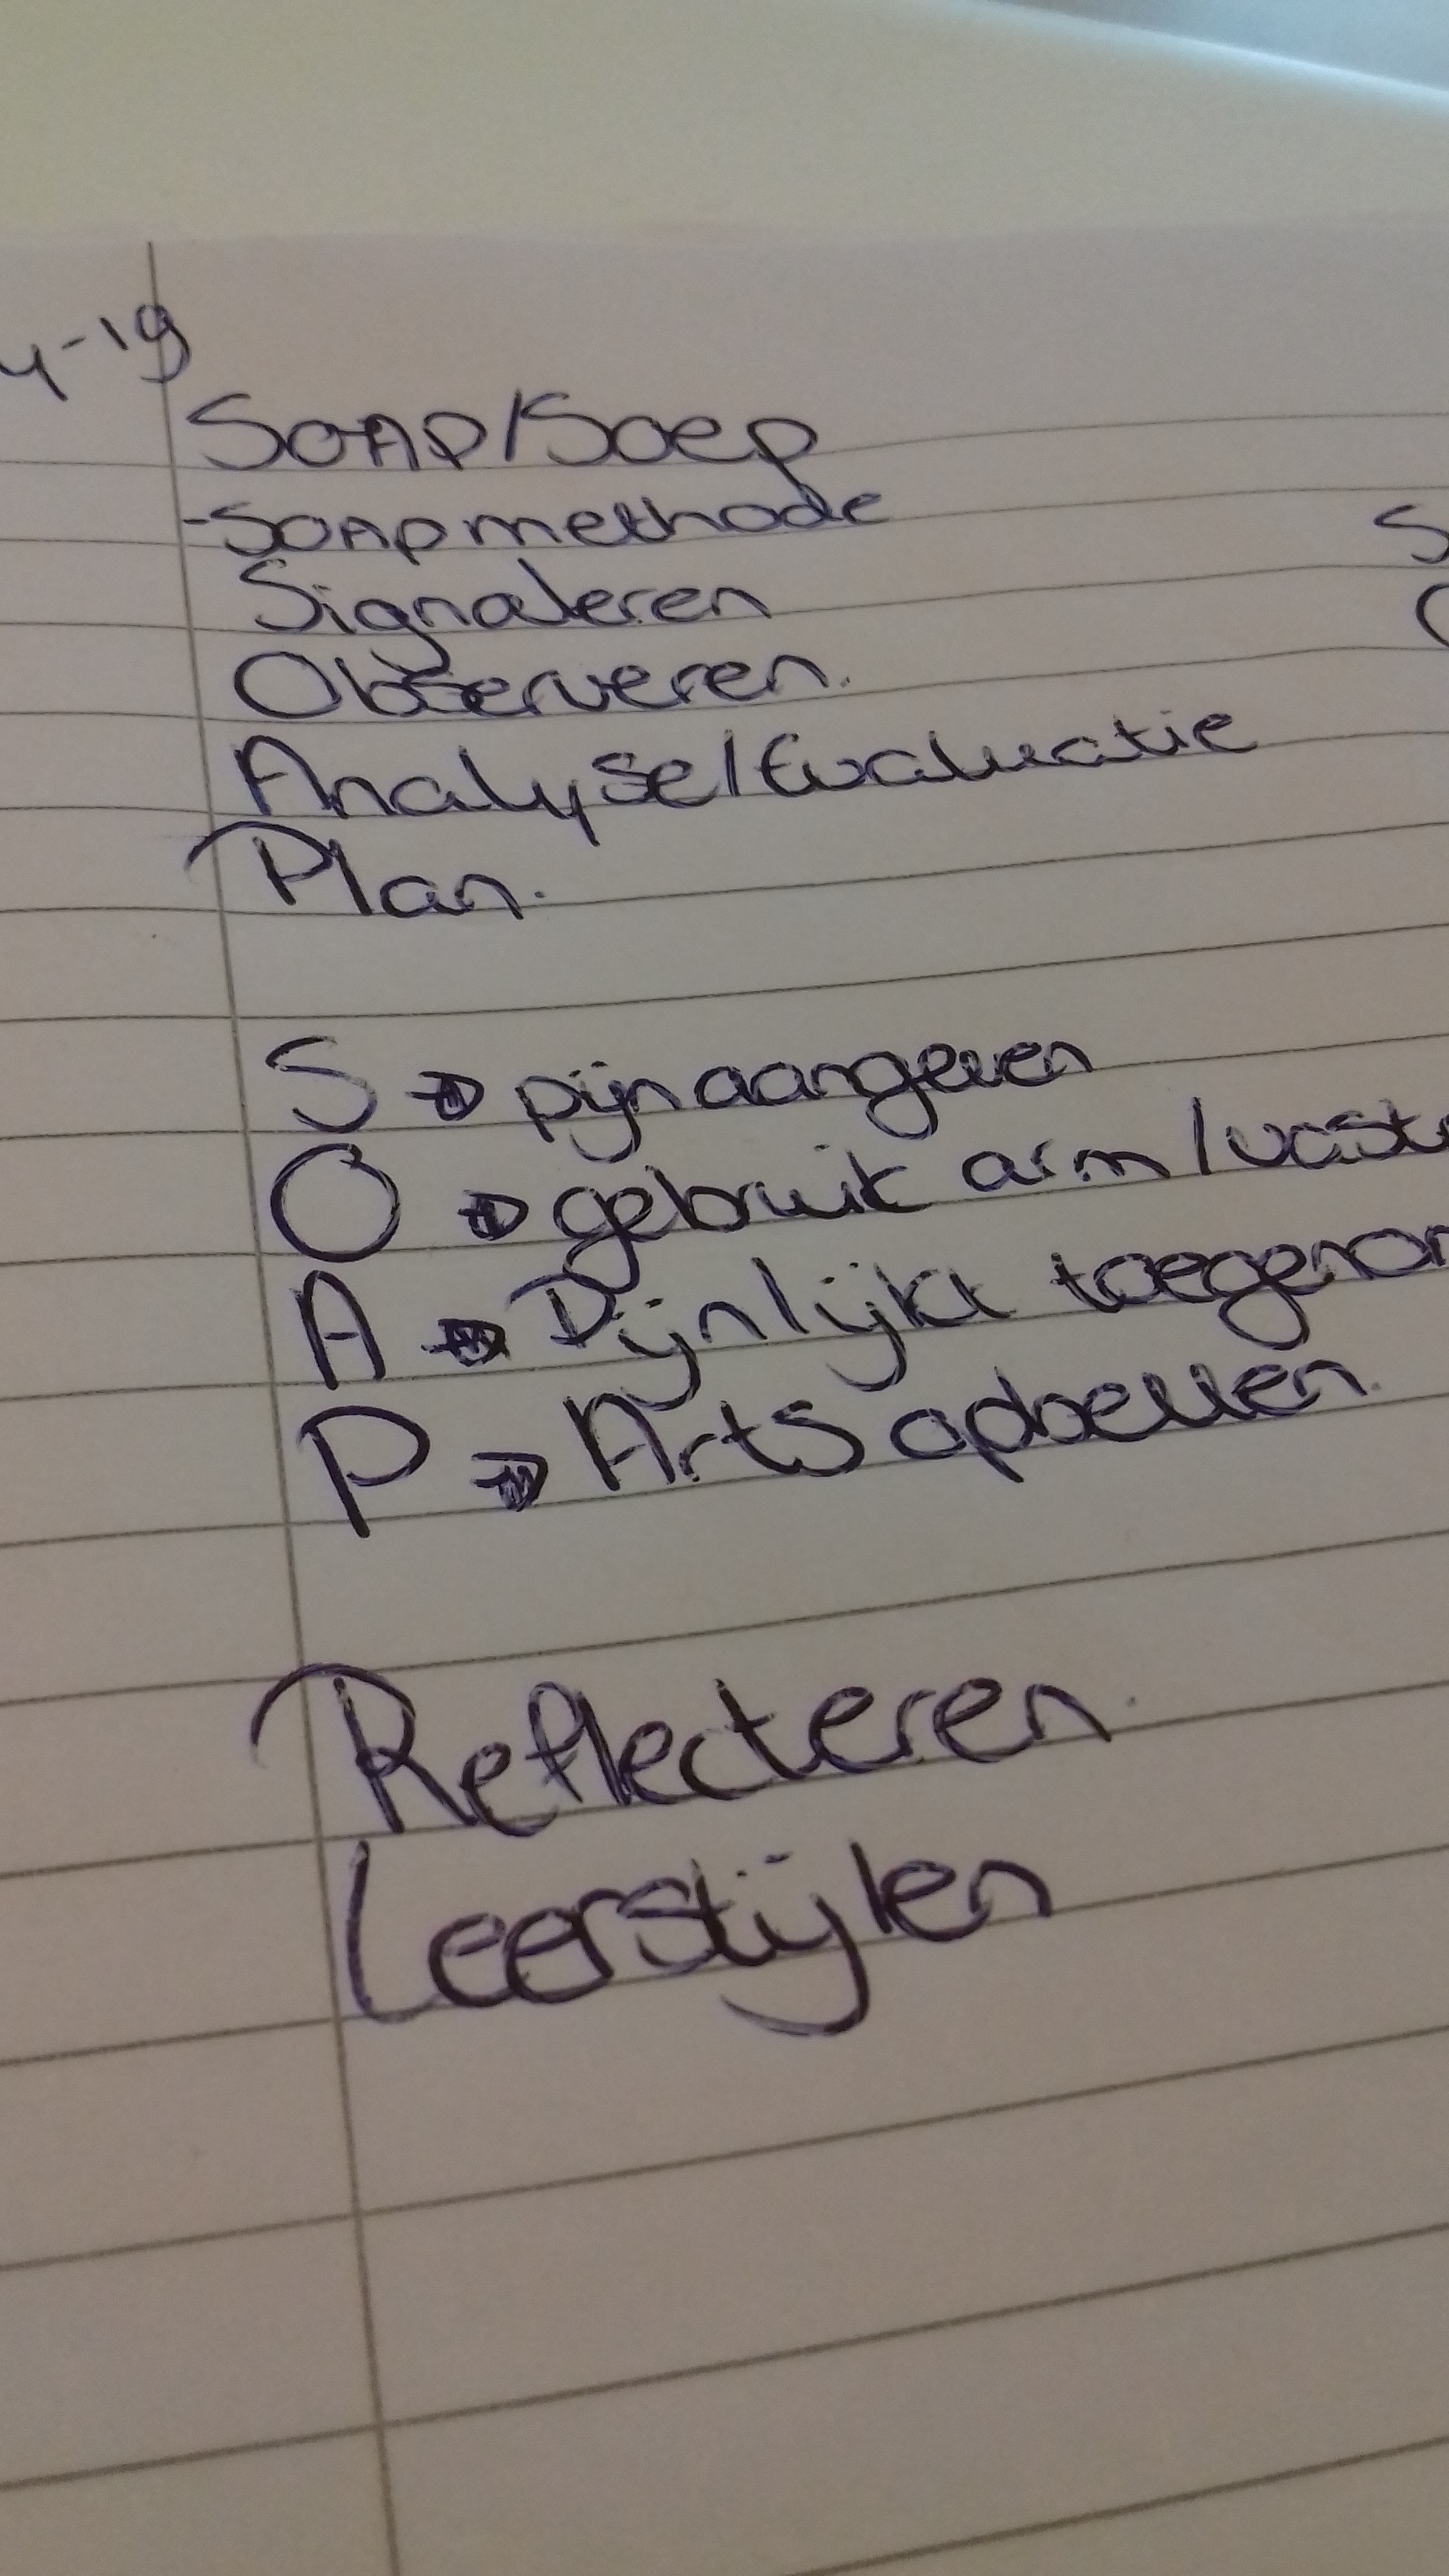 4-19
SOAP/Soep
-SOAPmethode
Signaleren
Observeren.
Analyse/Evaluatie
Plan.
S → pijn aangeven
O → gebruik arm /
A → Pijnlijkt
P → Arts opbellen.
Reflecteren.
Leerstijlen
S